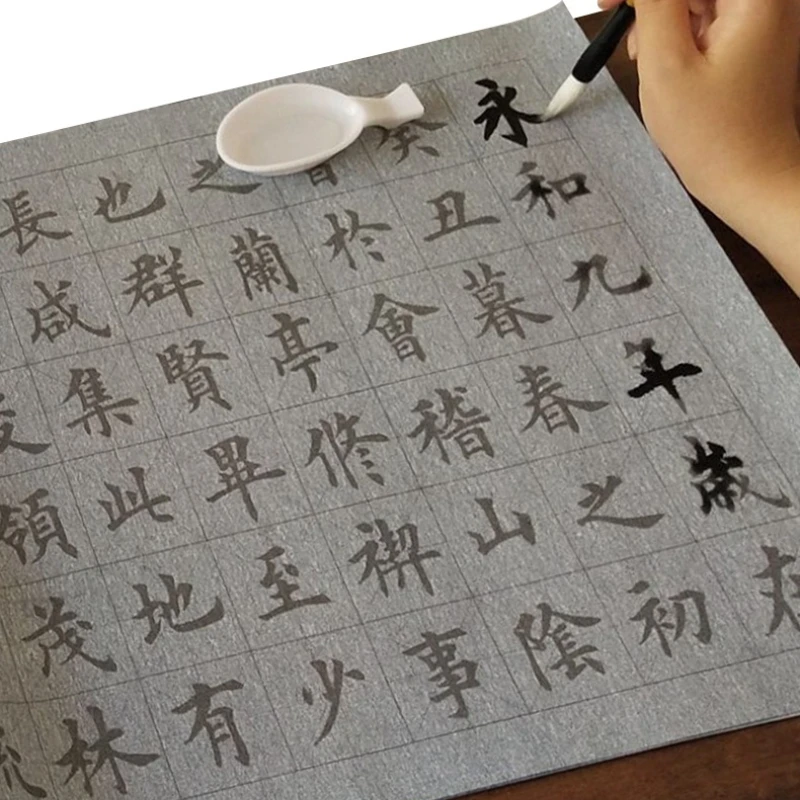 永和九年歳在
癸丑暮春之初
於會稽山陰
之蘭亭修禊事
也群賢畢至少
長咸集此地有
領茂林